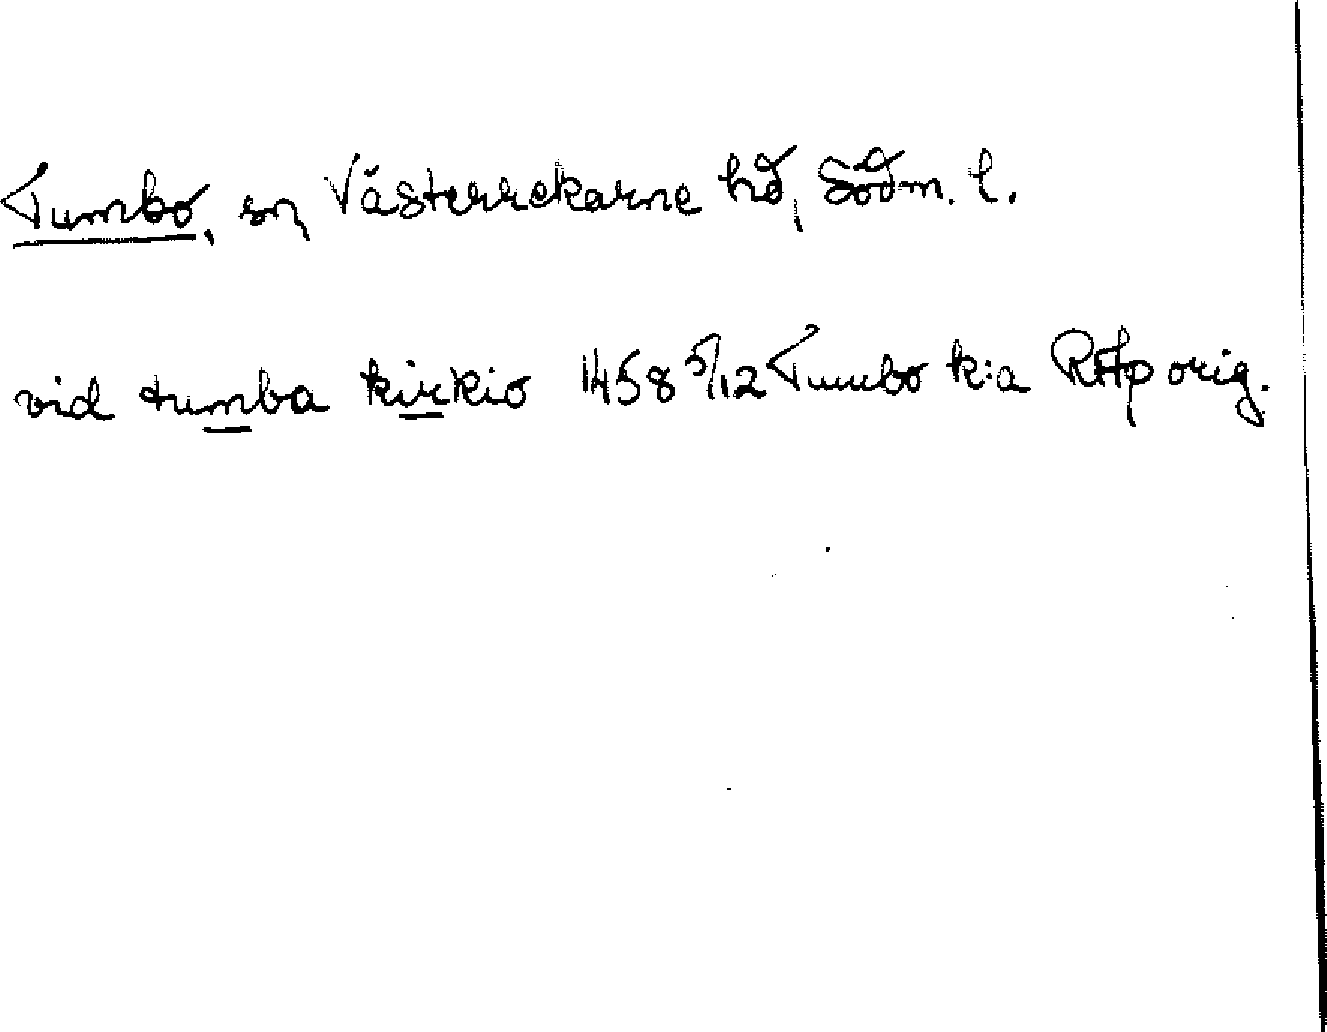 Tumbo, sn, Västerrekarne hd, Södm. l.
vid tumba kirkio 1458 5/12 Tumbo k:a RAp orig.